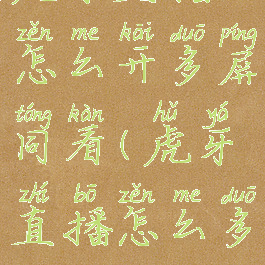 zěn me kāi duō píng
怎么开多屏
tóng kàn hǔ yá
同看(虎牙
zhí bō zěn me duō
直播怎么多